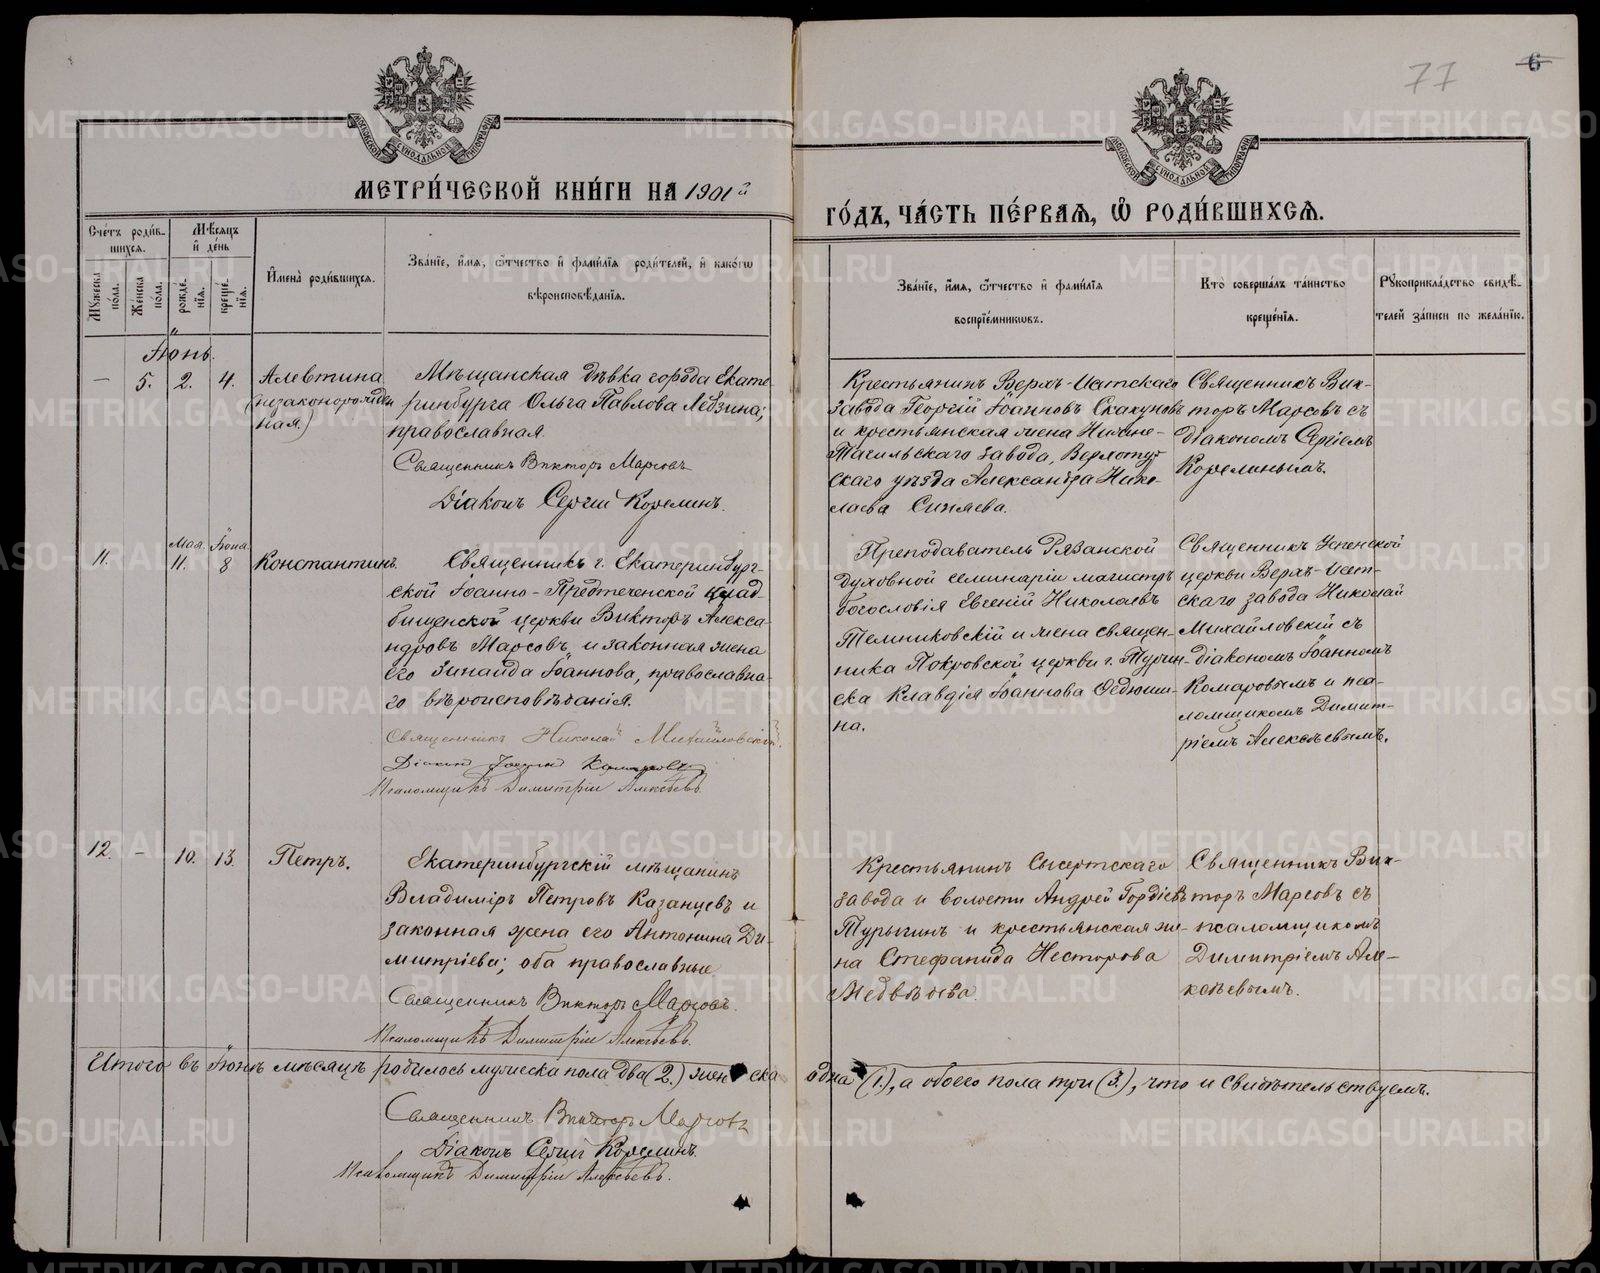 77
6
МОСКОВСКОЙ СУНОДАЛЬНОЙ ТИПОГРАФІИ
МОСКОВСКОЙ СУНОДАЛЬНОЙ ТИПОГРАФІИ
МЕТРИ́ЧЕСКОЙ КНИ́ГИ НА 1901й
ГО́ДЪ, ЧА́СТЬ ПЕ́РВАѦ, Ѽ РОДИ́ВШИХСѦ.
Сче́тъ роди́в-
шихся.
Му́жеска по́ла.
Же́нска по́ла.
Мѣ́сяцъ
и҆ де́нь
рожде́-
нїя.
креще́-
нїя.
И҆мена̀ роди́вшихся.
Зва́нїе, и҆́мя, ѻ҆́тчество и҆ фами́лїя роди́телей, и҆ како́гѡ
вѣроисповѣ́данїя.
Зва́нїе, и҆́мя, ѻ҆́тчество и҆ фами́лїя
воспрїе́мникѡвъ.
Кто̀ соверша́лъ та́инство
креще́нїя.
Рꙋкоприкла́дство свидѣ́-
телей за́писи по жела́нїю.
Іюнь.
— 5. 2. 4.
Алевтина
(незаконорожден
ная.)
Мѣщанская дѣвка города Екате-
ринбурга Ольга Павлова Лебзина;
православная.
Священникъ Викторъ Марсовъ
Діаконъ Сергій Корелинъ.
Крестьянинъ Верхъ-Исетскаго
завода Георгій Іоанновъ Скакуновъ
и крестьянская жена Нижне-
Тагильскаго завода, Верхотур-
скаго уѣзда Александра Нико-
лаева Синяева.
Священникъ Вик-
торъ Марсовъ съ
діакономъ Сергіемъ
Корелинымъ.
Мая. Іюня.
11. 11. 8
Константинъ.
Священникъ г. Екатеринбург-
ской Іоанно-Предтеченской клад-
бищенской церкви Викторъ Алекса-
ндровъ Марсовъ и законная жена
его Зинаида Іоаннова, православна-
го вѣроисповѣданія.
Священникъ Николай Михайловскій.
Діаконъ Іоаннъ Комаровъ
Псаломщикъ Димитрій Алексѣевъ
Преподаватель Рязанской
духовной семинаріи магистръ
богословія Евгеній Николаевъ
Темниковскій и жена священ-
ника Покровской церкви г. Турин-
ска Клавдія Іоаннова Федюши-
на.
Священникъ Успенской
церкви Верхъ-Исет-
скаго завода Николай
Михайловскій съ
діакономъ Іоанномъ
Комаровымъ и пса-
ломщикомъ Димит-
ріемъ Алексѣевымъ.
12. – 10. 13.
Петръ.
Екатеринбургскій мѣщанинъ
Владиміръ Петровъ Казанцевъ и
законная жена его Антонина Ди-
митріева; оба православные
Священникъ Викторъ Марсовъ.
Псаломщикъ Димитрій Алексѣевъ.
Крестьянинъ Сысертскаго
завода и волости Андрей Гордіевъ
Турыгинъ и крестьянская же-
на Стефанида Несторова
Медвѣдева.
Священникъ Вик-
торъ Марсовъ съ
псаломщикомъ
Димитріемъ Але-
ксѣевымъ.
Итого въ Іюнѣ мѣсяцѣ родилось мужеска пола два (2.) женска одна (1.), а обоего пола три (3.), что и свидѣтельствуемъ.
Священникъ Викторъ Марсовъ
Діаконъ Сергій Корелинъ.
Псаломщикъ Димитрій Алексѣевъ.
METRIKI.GASO-URAL.RU